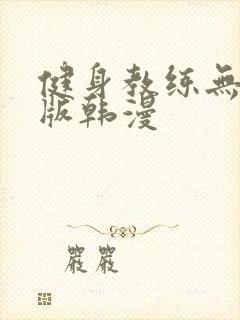 健身教练無
版韩漫
嚴嚴